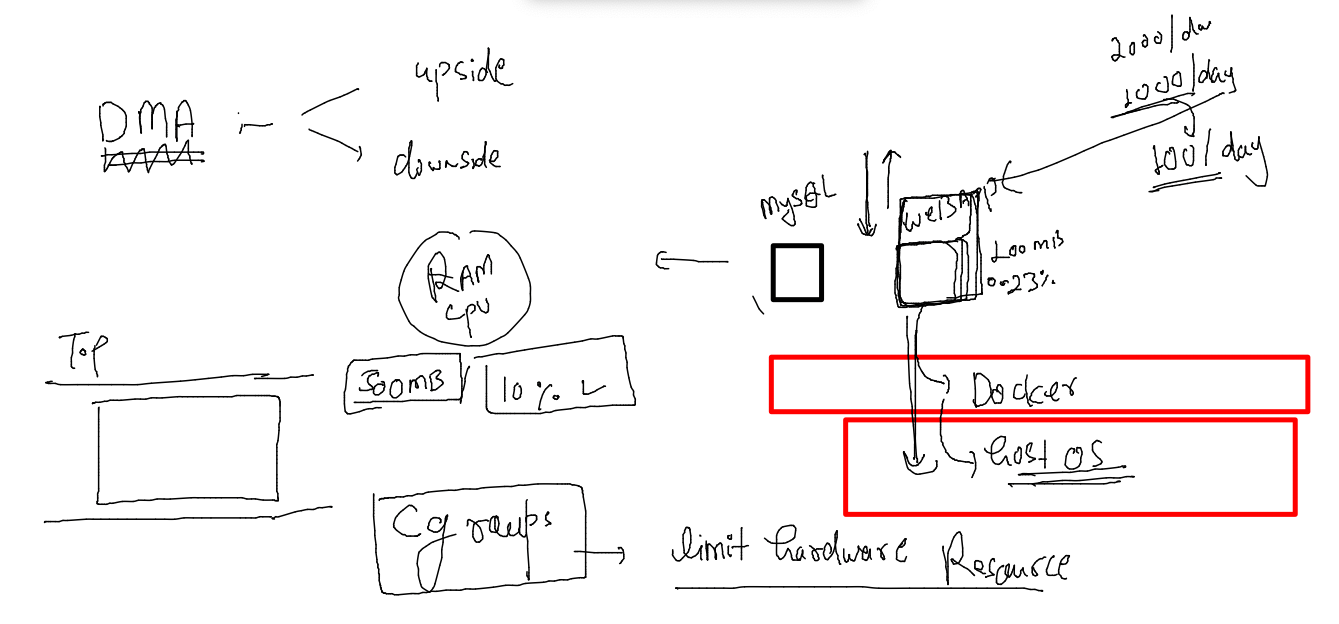 upside
DMA :-
downside
2000/da
1000/day
100/day
MySQL
WebApp
RAM
CPU
100 MB
0.23%
Top
500MB
10% ✓
Docker
host OS
Cgroups
limit hardware Resource